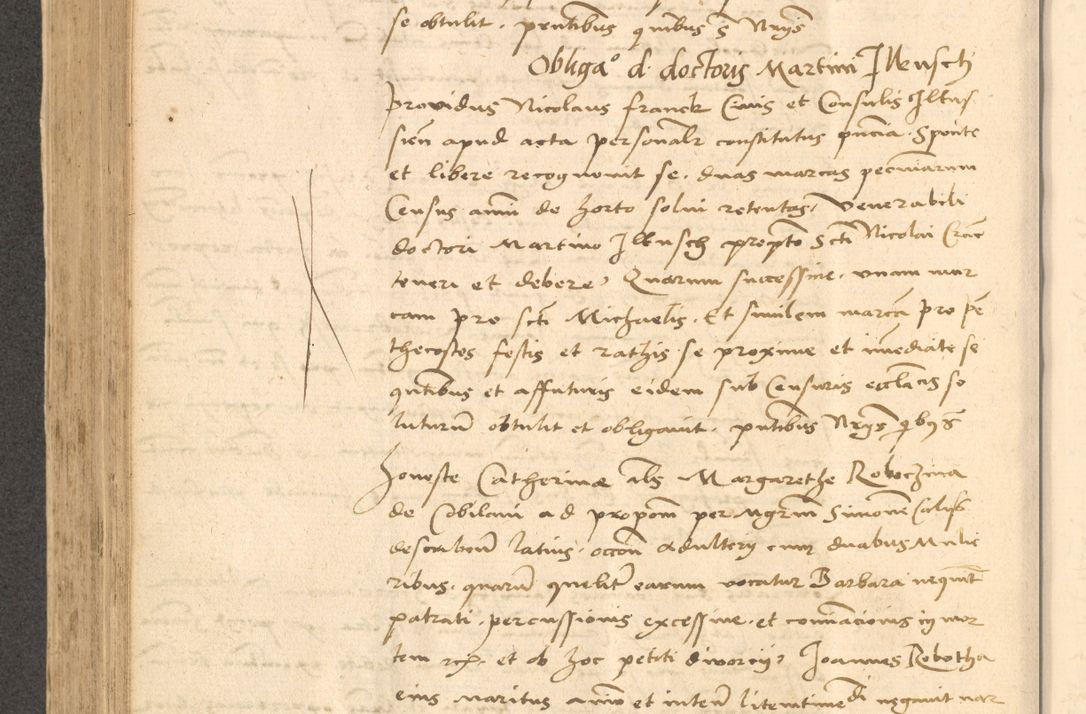 se obtulit. pntibus quibus s Nrijs
Obliga° d. doctoris Martini Illensch
Providus Nicolaus franck Civis et Consulis Ilkus
sien apud acta personalr constitutus pncia. Sponte
et libere recognouit se. duas marcas pecuniarum
Census anni de horto solui retentas, Venerabili
doctori Martino Illensch preposto Scti Nicolai Crac
teneri et debere, Quarum successiue. unam mar
cam pro scti Michaelis. Et similem marca pro pe
thecostes festis et rathis se proxime et imediate se
quntibus et affuturis eidem sub Censuris ecclacis so
luturu obtulit et obligauit. pntibus Nrijs qbus s
Honeste Catherine als Margarethe Roboczina
de Cobilani ad propom per Mgrm Simone
describem latius. occon adultery cum duabus Mulie
ribus. quaru quelibet earum vocatur Barbara nequit
patrati. percussionis excessiue. et cominacionis in mor
tem rcp. et ob hoc petiti diuorcij, Joannes Robotha
eius maritus animo et inten litem time di negauit nar